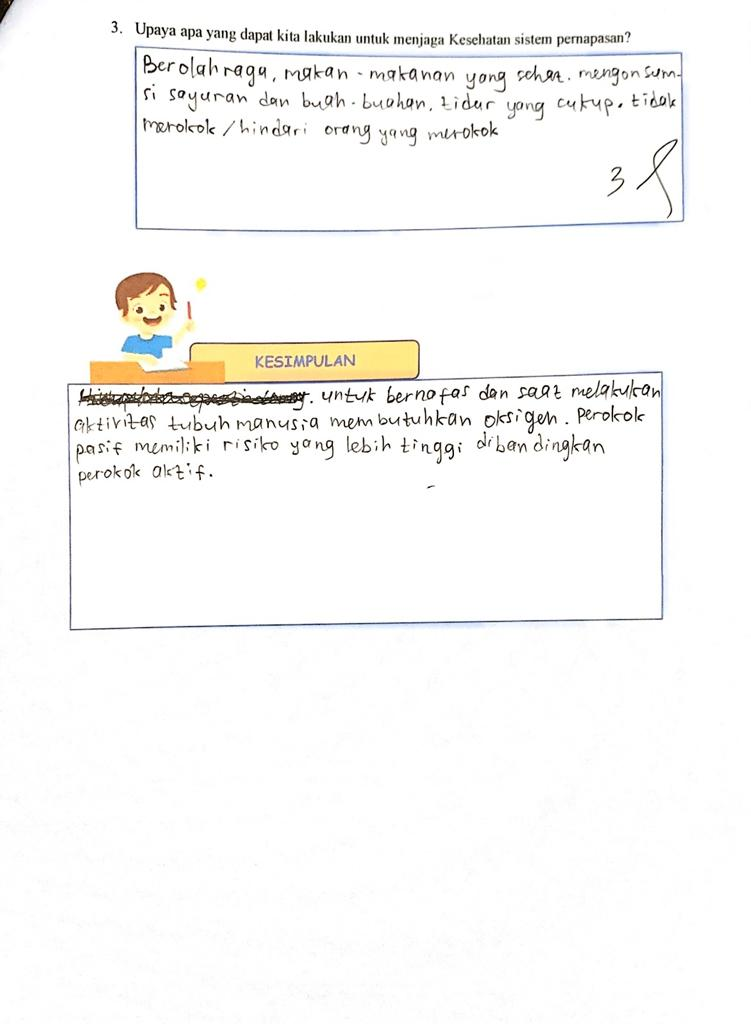 3. Upaya apa yang dapat kita lakukan untuk menjaga Kesehatan sistem pernapasan?
Berolahraga, makan - makanan yang sehat. mengonsum-
si sayuran dan buah-buahan, tidur yang cukup. tidak
merokok / hindari orang yang merokok
3
KESIMPULAN
untuk bernafas dan saat melakukan
aktivitas tubuh manusia membutuhkan oksigen. Perokok
pasif memiliki risiko yang lebih tinggi dibandingkan
perokok aktif.